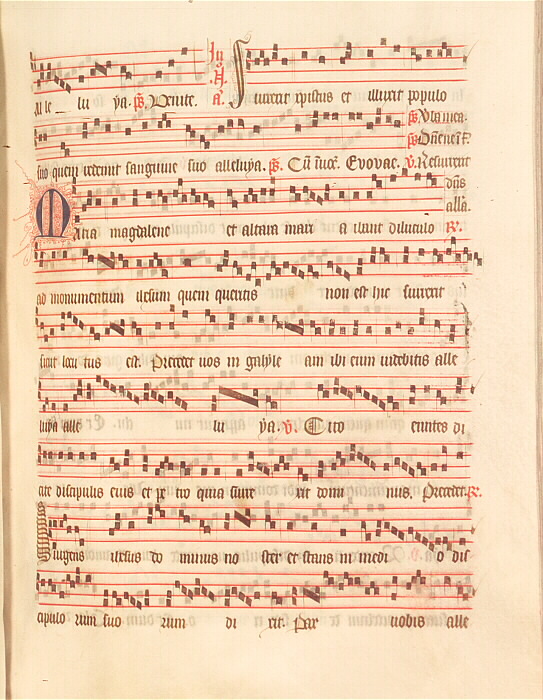 Alle lu ya. ps. Venite. a. Surrexit xpistus et illuxit populo
suo quem redemit sanguine suo alleluya. ps. Evovae. v. Resurrexit dns
Maria magdalene et altera mari a ibant diluculo R.
ad monumentum ihesum quem queritis non est hic surrexit
sicut locu tus est. Precedet vos in galyle am ibi eum videbitis alle
luya alle lu ya. v. Cito euntes di
cite discipulis eius et pe tro quia surre xit domi nus. Precedet. R.
Surgens ihesus do minus no ster et stans in medi o dis
cipulo rum suo rum di xit. Pax vobis alle